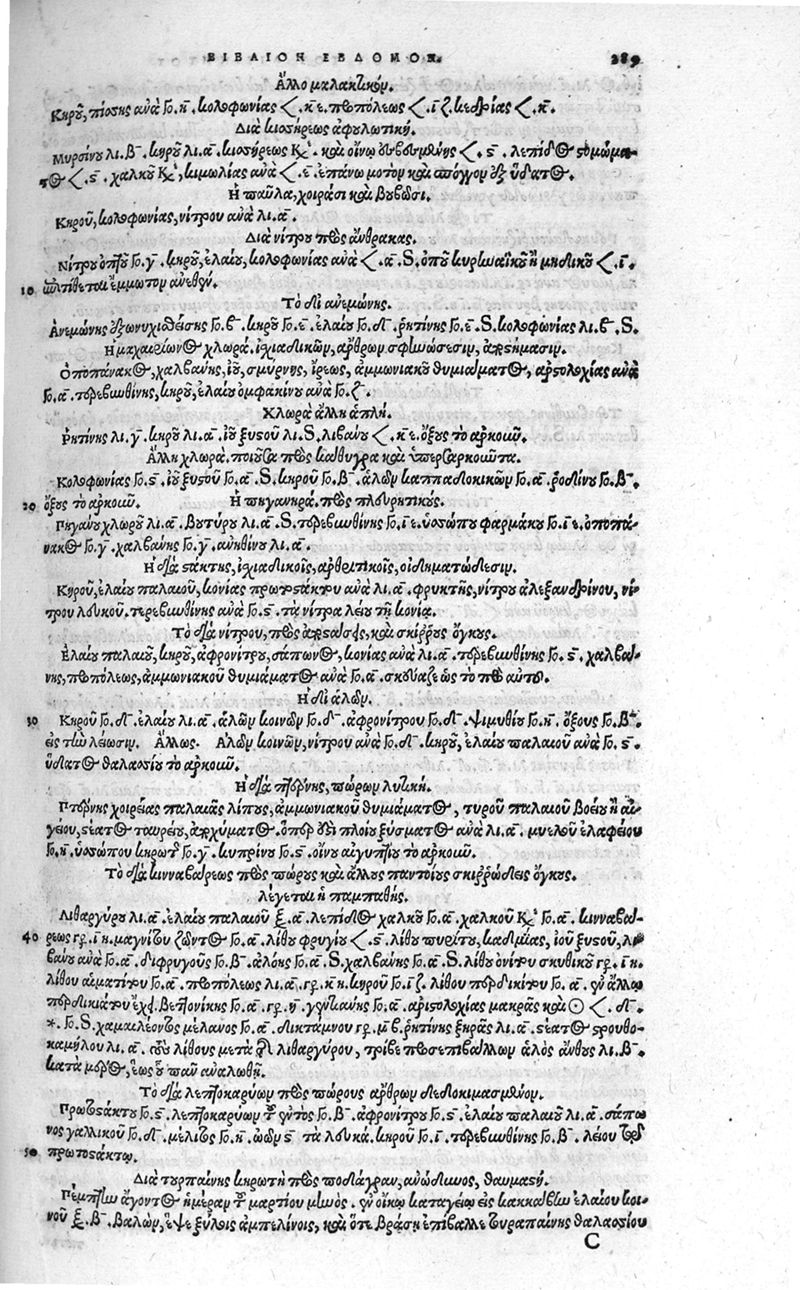 ΒΙΒΛΙΟΝ ΕΒΔΟΜΟΝ. 289
Ἄλλο μαλακτικόν.
Κηροῦ, πίσσης ἀνὰ γο. κ̄. κολοφωνίας <. κε. προπόλεως <. ιζ. κεδρίας <. κ̄.
Διὰ κισσήρεως ἀφυλωτική.
Μυρσίνου λι. β̄. κηροῦ λι. ᾱ. κισσήρεως κεκ. καὶ οἴνῳ σβεσμένης <. ϛ̄. λεπίδος στομώμα-
τος <. ϛ̄. χαλκοῦ κεκ, κιμωλίας ἀνὰ <. ε̄. ἐπάνω μοτὸν καὶ σπόγγον ἐξ ὕδατος.
Ἡ παῦλα, χοιράσι καὶ βουβῶσι.
Κηροῦ, κολοφωνίας, νίτρου ἀνὰ λι. ᾱ.
Διὰ νίτρου πρὸς ἄνθρακας.
Νίτρου ὀπτοῦ γο. γ̄. κηροῦ, ἐλαίου, κολοφωνίας ἀνὰ <. ᾱ. S. ὀποῦ κυρηναϊκοῦ ἢ μηδικοῦ <. ῑ.
10 ἐπιτίθεται ἔμμοτον ἀνεθὲν.
Τὸ δι ἀνεμώνης.
Ἀνεμώνης ἐξονυχισθείσης γο. ϐ̄. κηροῦ γο. ε̄. ἐλαίου γο. δ̄. ῥητίνης γο. ε̄. S. κολοφωνίας λι. ϐ. S.
Ἡ μαχαιρίωνος χλωρά. ἰσχιαδικῶν, ἄρθρων σφηνώσεσιν, ἀποστήμασιν.
Ὀποπάνακος, χαλβάνης, ἰοῦ, σμύρνης, ἴρεως, ἀμμωνιακοῦ θυμιάματος, ἀριστολοχίας ἀνὰ
γο. ᾱ. τερεβινθίνης, κηροῦ, ἐλαίου ὀμφακίνου ἀνὰ γο. ζ̄.
Χλωρὰ ἄλλη ἁπλῆ.
Ῥητίνης λι. γ̄. κηροῦ λι. ᾱ. ἰοῦ ξυστοῦ λι. S. λιβάνου <. κε. ὄξους τὸ ἀρκοῦν.
Ἄλλη χλωρά. ποιοῦσα πρὸς κάθυγρα καὶ ὑπερσαρκοῦντα.
Κολοφωνίας γο. ϛ̄. ἰοῦ ξυστοῦ γο. ᾱ. S. κηροῦ γο. β̄. ἁλῶν καππαδοκικῶν γο. ᾱ. ῥοδίνου γο. β̄.
20 ὄξους τὸ ἀρκοῦν. Ἡ πηγανηρά. πρὸς πλευριτικούς.
Πηγάνου χλωροῦ λι. ᾱ. βουτύρου λι. ᾱ. S. τερεβινθίνης γο. ιε. ὑσσώπου φαρμάκου γο. ιε. ὀποπά-
νακος γο. γ̄. χαλβάνης γο. γ̄. ἀνηθίνου λι. ᾱ.
Ἡ διὰ στάκτης, ἰσχιαδικοῖς, ἀρθριτικοῖς, οἰδηματώδεσιν.
Κηροῦ, ἐλαίου παλαιοῦ, κονίας πρωτοστάκτου ἀνὰ λι. ᾱ. φρυκτῆς, νίτρου ἀλεξανδρίνου, νί-
τρου λευκοῦ. τερεβινθίνης ἀνὰ γο. ϛ̄. τὰ νίτρα λείου τῇ κονίᾳ.
Τὸ διὰ νίτρου, πρὸς παρωτίδας, καὶ σκίρρους ὄγκους.
Ἐλαίου παλαιοῦ, κηροῦ, ἀφρονίτρου, σάπωνος, κονίας ἀνὰ λι. ᾱ. τερεβινθίνης γο. ϛ̄. χαλβά-
νης, προπόλεως, ἀμμωνιακοῦ θυμιάματος ἀνὰ γο. ᾱ. σκεύαζε ὡς τὸ πρὸ αὐτοῦ.
Ἡ δι ἁλῶν.
30 Κηροῦ γο. δ̄. ἐλαίου λι. ᾱ. ἁλῶν κοινῶν γο. δ̄. ἀφρονίτρου γο. δ̄. ψιμυθίου γο. κ̄. ὄξους γο. β̄.
εἰς τὴν λείωσιν. Ἄλλως. Ἁλῶν κοινῶν, νίτρου ἀνὰ γο. δ̄. κηροῦ, ἐλαίου παλαιοῦ ἀνὰ γο. ϛ̄.
ὕδατος θαλασσίου τὸ ἀρκοῦν.
Ἡ διὰ πτέρνης, πώρων λυτική.
Πτέρνης χοιρείας παλαιᾶς λίπους, ἀμμωνιακοῦ θυμιάματος, τυροῦ παλαιοῦ βοείου ἢ αἰ-
γείου, στέατος ταυρείου, ἀποχύματος. ὅπερ ἐστὶ πλοίου ξύσματος ἀνὰ λι. ᾱ. μυελοῦ ἐλαφείου
γο. κ̄. ὑσσώπου κηρωτοῦ γο. γ̄. κυπρίνου γο. ϛ̄. οἴνου αἰγυπτίου τὸ ἀρκοῦν.
Τὸ διὰ κινναβάρεως πρὸς πώρους καὶ ἄλλους παντοίους σκιρρώδεις ὄγκους.
λέγεται ἡ παμπαθής.
Λιθαργύρου λι. ᾱ. ἐλαίου παλαιοῦ ξ. ᾱ. λεπίδος χαλκοῦ γο. ᾱ. χαλκοῦ κεκ γο. ᾱ. κινναβά-
40 ρεως γρ. ιη. μαγνίτου ζῶντος γο. ᾱ. λίθου φρυγίου <. ϛ̄. λίθου πυρίτου, καδμίας, ἰοῦ ξυστοῦ, λι-
βάνου ἀνὰ γο. ᾱ. διφρυγοῦς γο. β̄. ἀλόης γο. ᾱ. S. χαλβάνης γο. ᾱ. S. λίθου ὀνίτου σκυθικοῦ γρ. ιη.
λίθου αἱματίτου γο. ᾱ. προπόλεως λι. ᾱ. γρ. κη. κηροῦ γο. ιζ. λίθου περδικίτου γο. ᾱ. ἐν ἄλλῳ
περδικιάτου ἔχει. βετονίκης γο. ᾱ. γρ. η̄. γεντιανῆς γο. ᾱ. ἀριστολοχίας μακρᾶς καὶ ☉ <. δ̄.
*. γο. S. χαμαιλέοντος μέλανος γο. ᾱ. δικτάμνου γρ. μβ. ῥητίνης ξηρᾶς λι. ᾱ. στέατος στρουθο-
καμήλου λι. ᾱ. τοὺς λίθους μετὰ τῆς λιθαργύρου, τρίβε προσεπιβάλλων ἁλὸς ἄνθους λι. β̄.
κατὰ μέρος, ἕως οὗ πᾶν ἀναλωθῇ.
Τὸ διὰ λεπτοκαρύων πρὸς πώρους ἄρθρων δεδοκιμασμένον.
Πρωτοστάκτου γο. ϛ̄. λεπτοκαρύων τῶν ἐντὸς γο. β̄. ἀφρονίτρου γο. ϛ̄. ἐλαίου παλαιοῦ λι. ᾱ. σάπω
νος γαλλικοῦ γο. δ̄. μέλιτος γο. κ̄. ὠῶν ϛ̄ τὰ λευκά. κηροῦ γο. ῑ. τερεβινθίνης γο. β̄. λείου τῷ
50 πρωτοστάκτῳ.
Διὰ τερπαίνης κηρωτὴ πρὸς ποδάγραν, ἀνώδυνος, θαυμαστή.
Πέμπτην ἄγοντος ἡμέραν τοῦ μαρτίου μηνὸς. ἐν οἴκῳ καταγείῳ εἰς κακκάβην ἐλαίου κοι-
νοῦ ξ. β̄. βαλὼν, ἕψε ξύλοις ἀμπελίνοις, καὶ ὅτε βράσῃ ἐπίβαλλε τυραπαίνης θαλασσίου
C